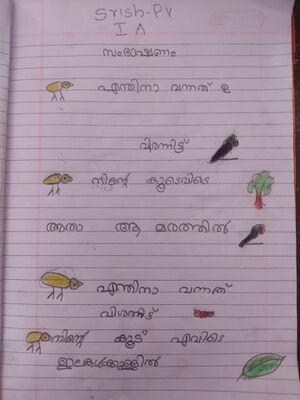 Srish-PV
I A
സംഭാഷണം
എന്തിനാ വന്നത്
വിശന്നിട്ട്
നിന്റെ കൂടെവിടെ
അതാ ആ മരത്തിൽ
എന്തിനാ വന്നത്
വിശന്നിട്ട്
നിന്റെ കൂട് എവിടെ
ഇലകൾക്കുള്ളിൽ